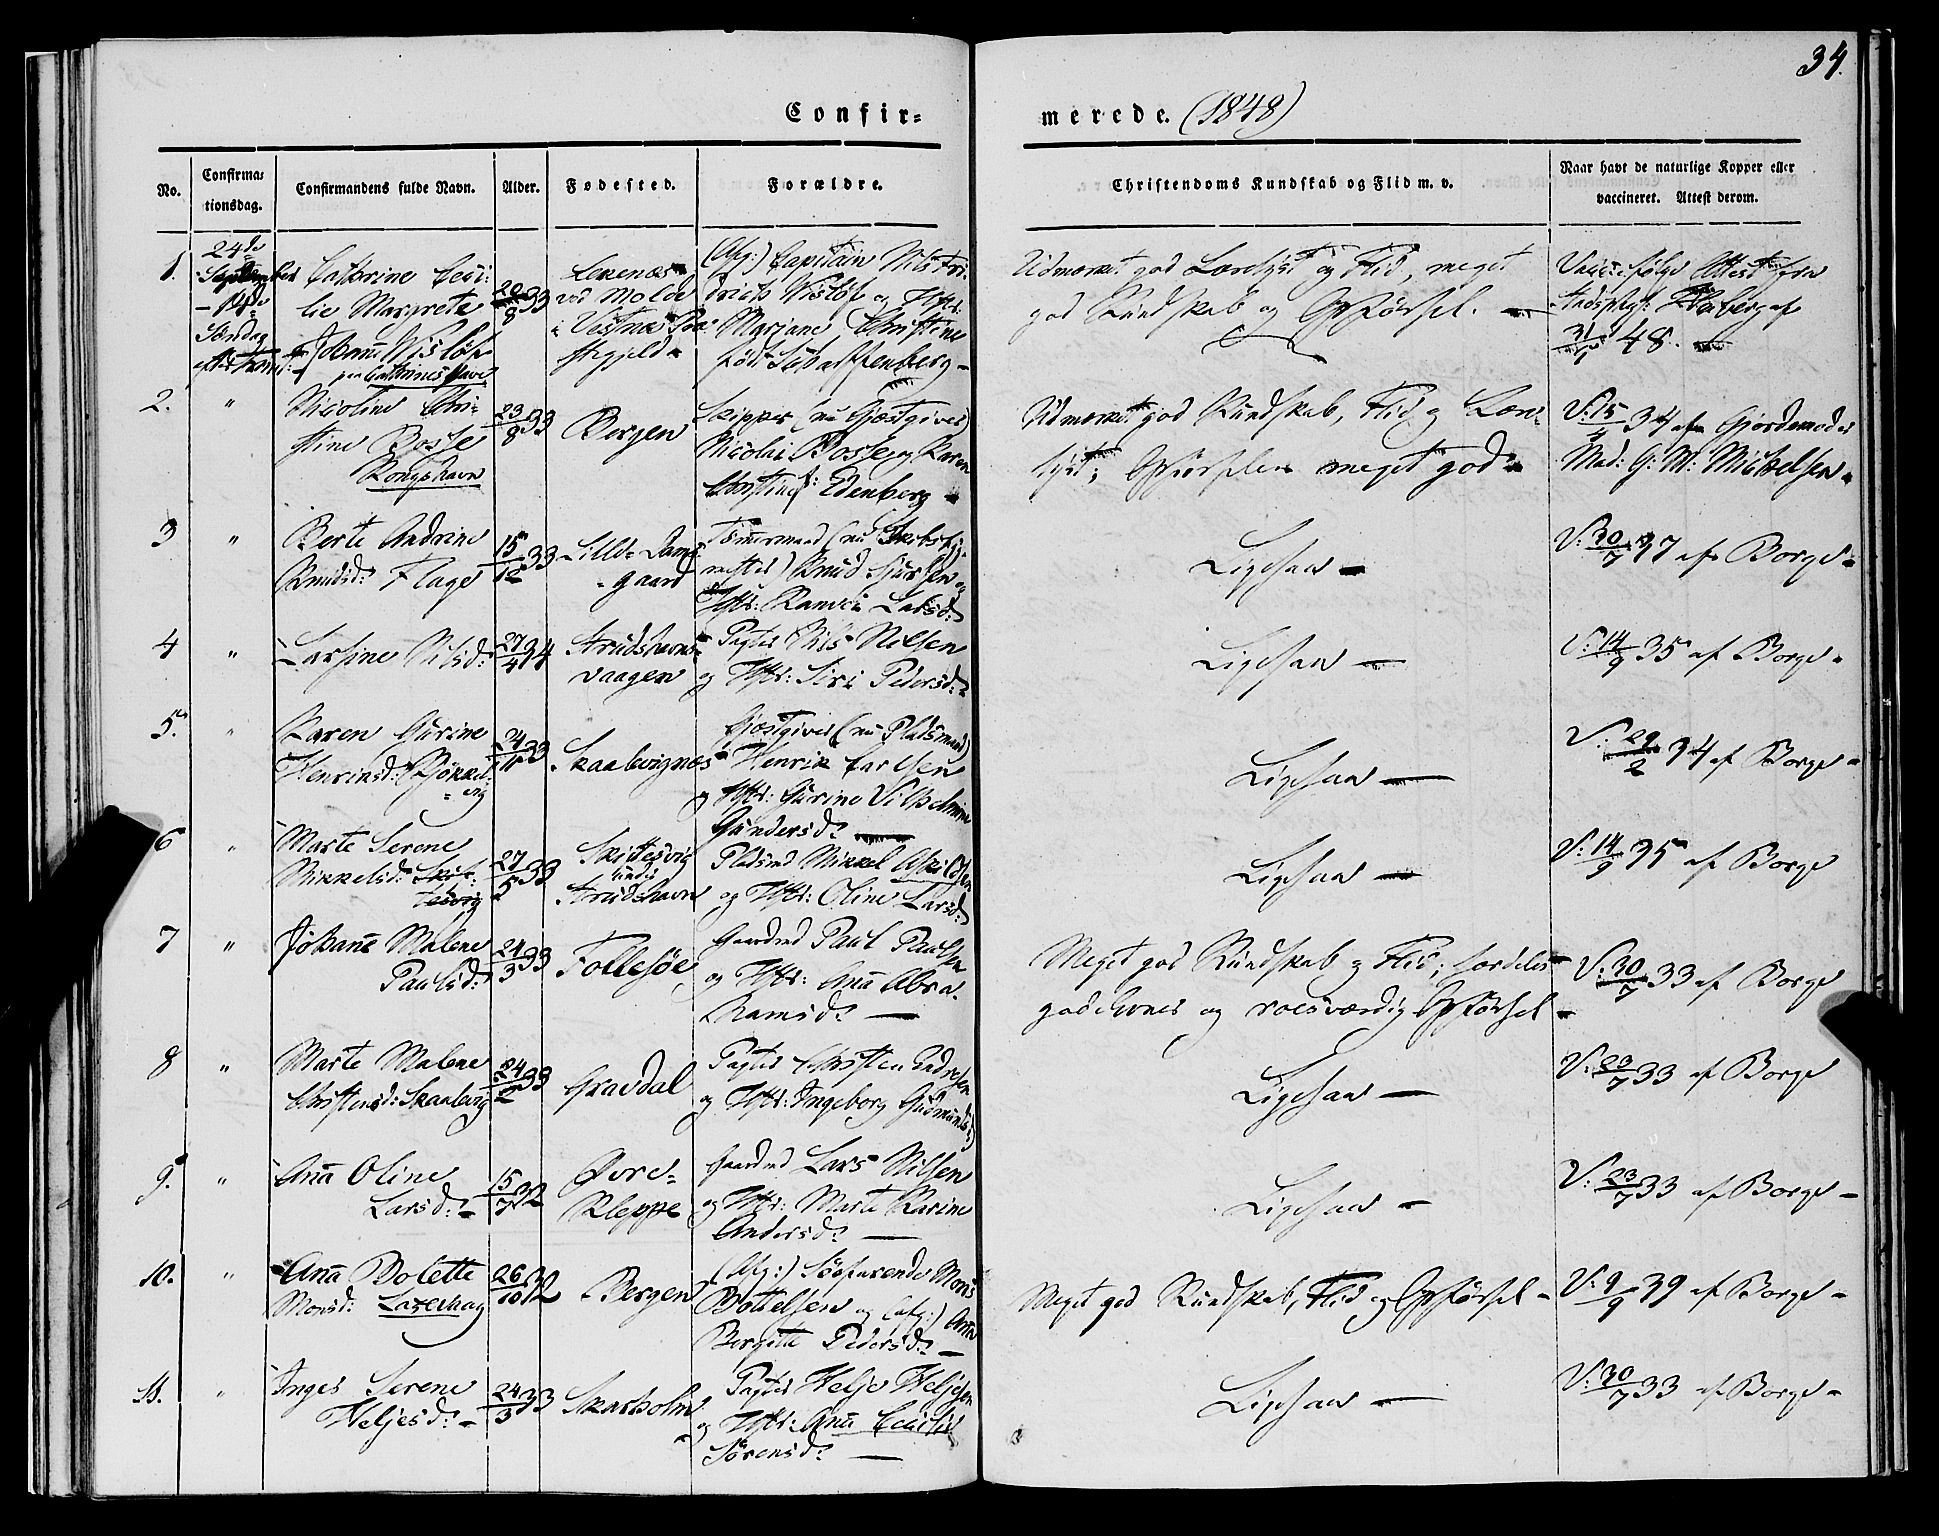 34.
Confir-
merede. (1848)
No.
Confirma-
tionsdag.
Confirmandens fulde Navn.
Alder.
Fødested.
Forældre.
Christendoms Kundskab og Flid m. v.
Naar havt de naturlige Kopper eller
vaccineret. Attest derom.
1.
24de
September
Søndag
Cathrine Ceci-
lie Margrete
Johanne Wisløf
20/8 33
ved Molde
i Vestnæs Præ-
stegjeld
(Afg:) Capitain Nils Fri-
drich Wisløf og Hstr:
Mariane Christine
født Scharffenberg
Udmærket god Lærelyst og Flid, meget
god Kundskab og Opførsel.
Vacc: ifølge Attest fra
48.
2.
"
Nicoline Chri-
stine Bosse
Kongshavn
23/8 33
Bergen
Skipper (nu Gjæstgiver)
Nicolai Bosse og Karen
Christine f: Edenberg
Udmærket god Kundskab, Flid og Lære-
lyst; Opførselen meget god
V: 15/4 34 af Gjordemoder
Mad: G: M: Mickelsen
3
"
Berte Andrine
Knudsd: Flage
15/12 33
Lille Dams-
gaard
Tømmermand (nu
Knud Sjursen og
Hstr: Ranvei Larsd:
Ligesaa
V: 30/7 37 af Borge
4
"
Larsine Nilsd:
27/4 34
Strudshavns-
vaagen
Pagter Nils Nilsen
og Hstr: Siri Pedersd:
Ligesaa
V: 14/9 35 af Borge
5.
"
Karen Gurine
Henriksd:
24/11 33
Skaalevignæs
Gjæstgiver (nu Pladsmand)
Henrik Carlsen
og Hstr: Gurine Vilhelmine
Gundersd:
Ligesaa
V: 29/2 34 af Borge
6
"
Marte Serene
Mikkelsd: Skit-
tesvig
27/5 33
Skittesvig
under
Strudshavn
Pladsmd Mikkel Askildsen
og Hstr: Oline Larsd:
Ligesaa
V: 14/9 35 af Borge
7
"
Johanne Malene
Paulsd:
24/3 33
Follesøe
Gaardmd Paul Paulsen
og Hstr: Anna Abra-
hamsd:
Meget god Kundskab og Flid; særdeles
god Evner og roesværdig Opførsel
V: 30/7 33 af Borge
8
"
Marte Malene
Christensd: Skaalevig
24/2 33
Gravdal
Pagter Christen Endresen
og Hstr: Ingeborg Gudmundsd:
Ligesaa
V: 23/7 33 af Borge
9.
"
Anna Oline
Larsd:
15/7 32
Øvre-
Kleppe
Gaardmd Lars Nilsen
og Hstr: Marte Karine
Andersd:
Ligesaa
V: 23/7 33 af Borge
10.
"
Anna Bolette
Monsd: Laxevaag
26/10 32
Bergen
(Afg:) Søefarende Mons
Bottelsen og (afg:) Anna
Bergitte Pedersd:
Meget god Kundskab, Flid og Opførsel
V: 9/9 39 af Borge
11.
"
Inger Serene
Heljesd:
24/3 33
Skarholm
Pagter Helje Heljesen
og Hstr: Anna Cecilie
Sørensd:
Ligesaa
V: 30/7 33 af Borge